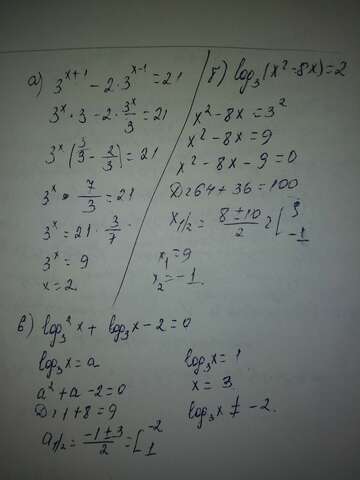 а) 3^{x+1} - 2·3^{x-1} = 21
3^x · 3 - 2 · 3^x/3 = 21
3^x (3/3 - 2/3) = 21
3^x · 7/3 = 21
3^x = 21 · 3/7
3^x = 9
x = 2
б) log_3 (x^2 - 8x) = 2
x^2 - 8x = 3^2
x^2 - 8x = 9
x^2 - 8x - 9 = 0
D = 64 + 36 = 100
x_{1/2} = (8 ± 10)/2 = [ 9
-1
x_1 = 9
x_2 = -1.
в) log_3^2 x + log_3 x - 2 = 0
log_3 x = a
a^2 + a - 2 = 0
D = 1 + 8 = 9
a_{1/2} = (-1 ± 3)/2 = [ -2
1
log_3 x = 1
x = 3
log_3 x ≠ -2.